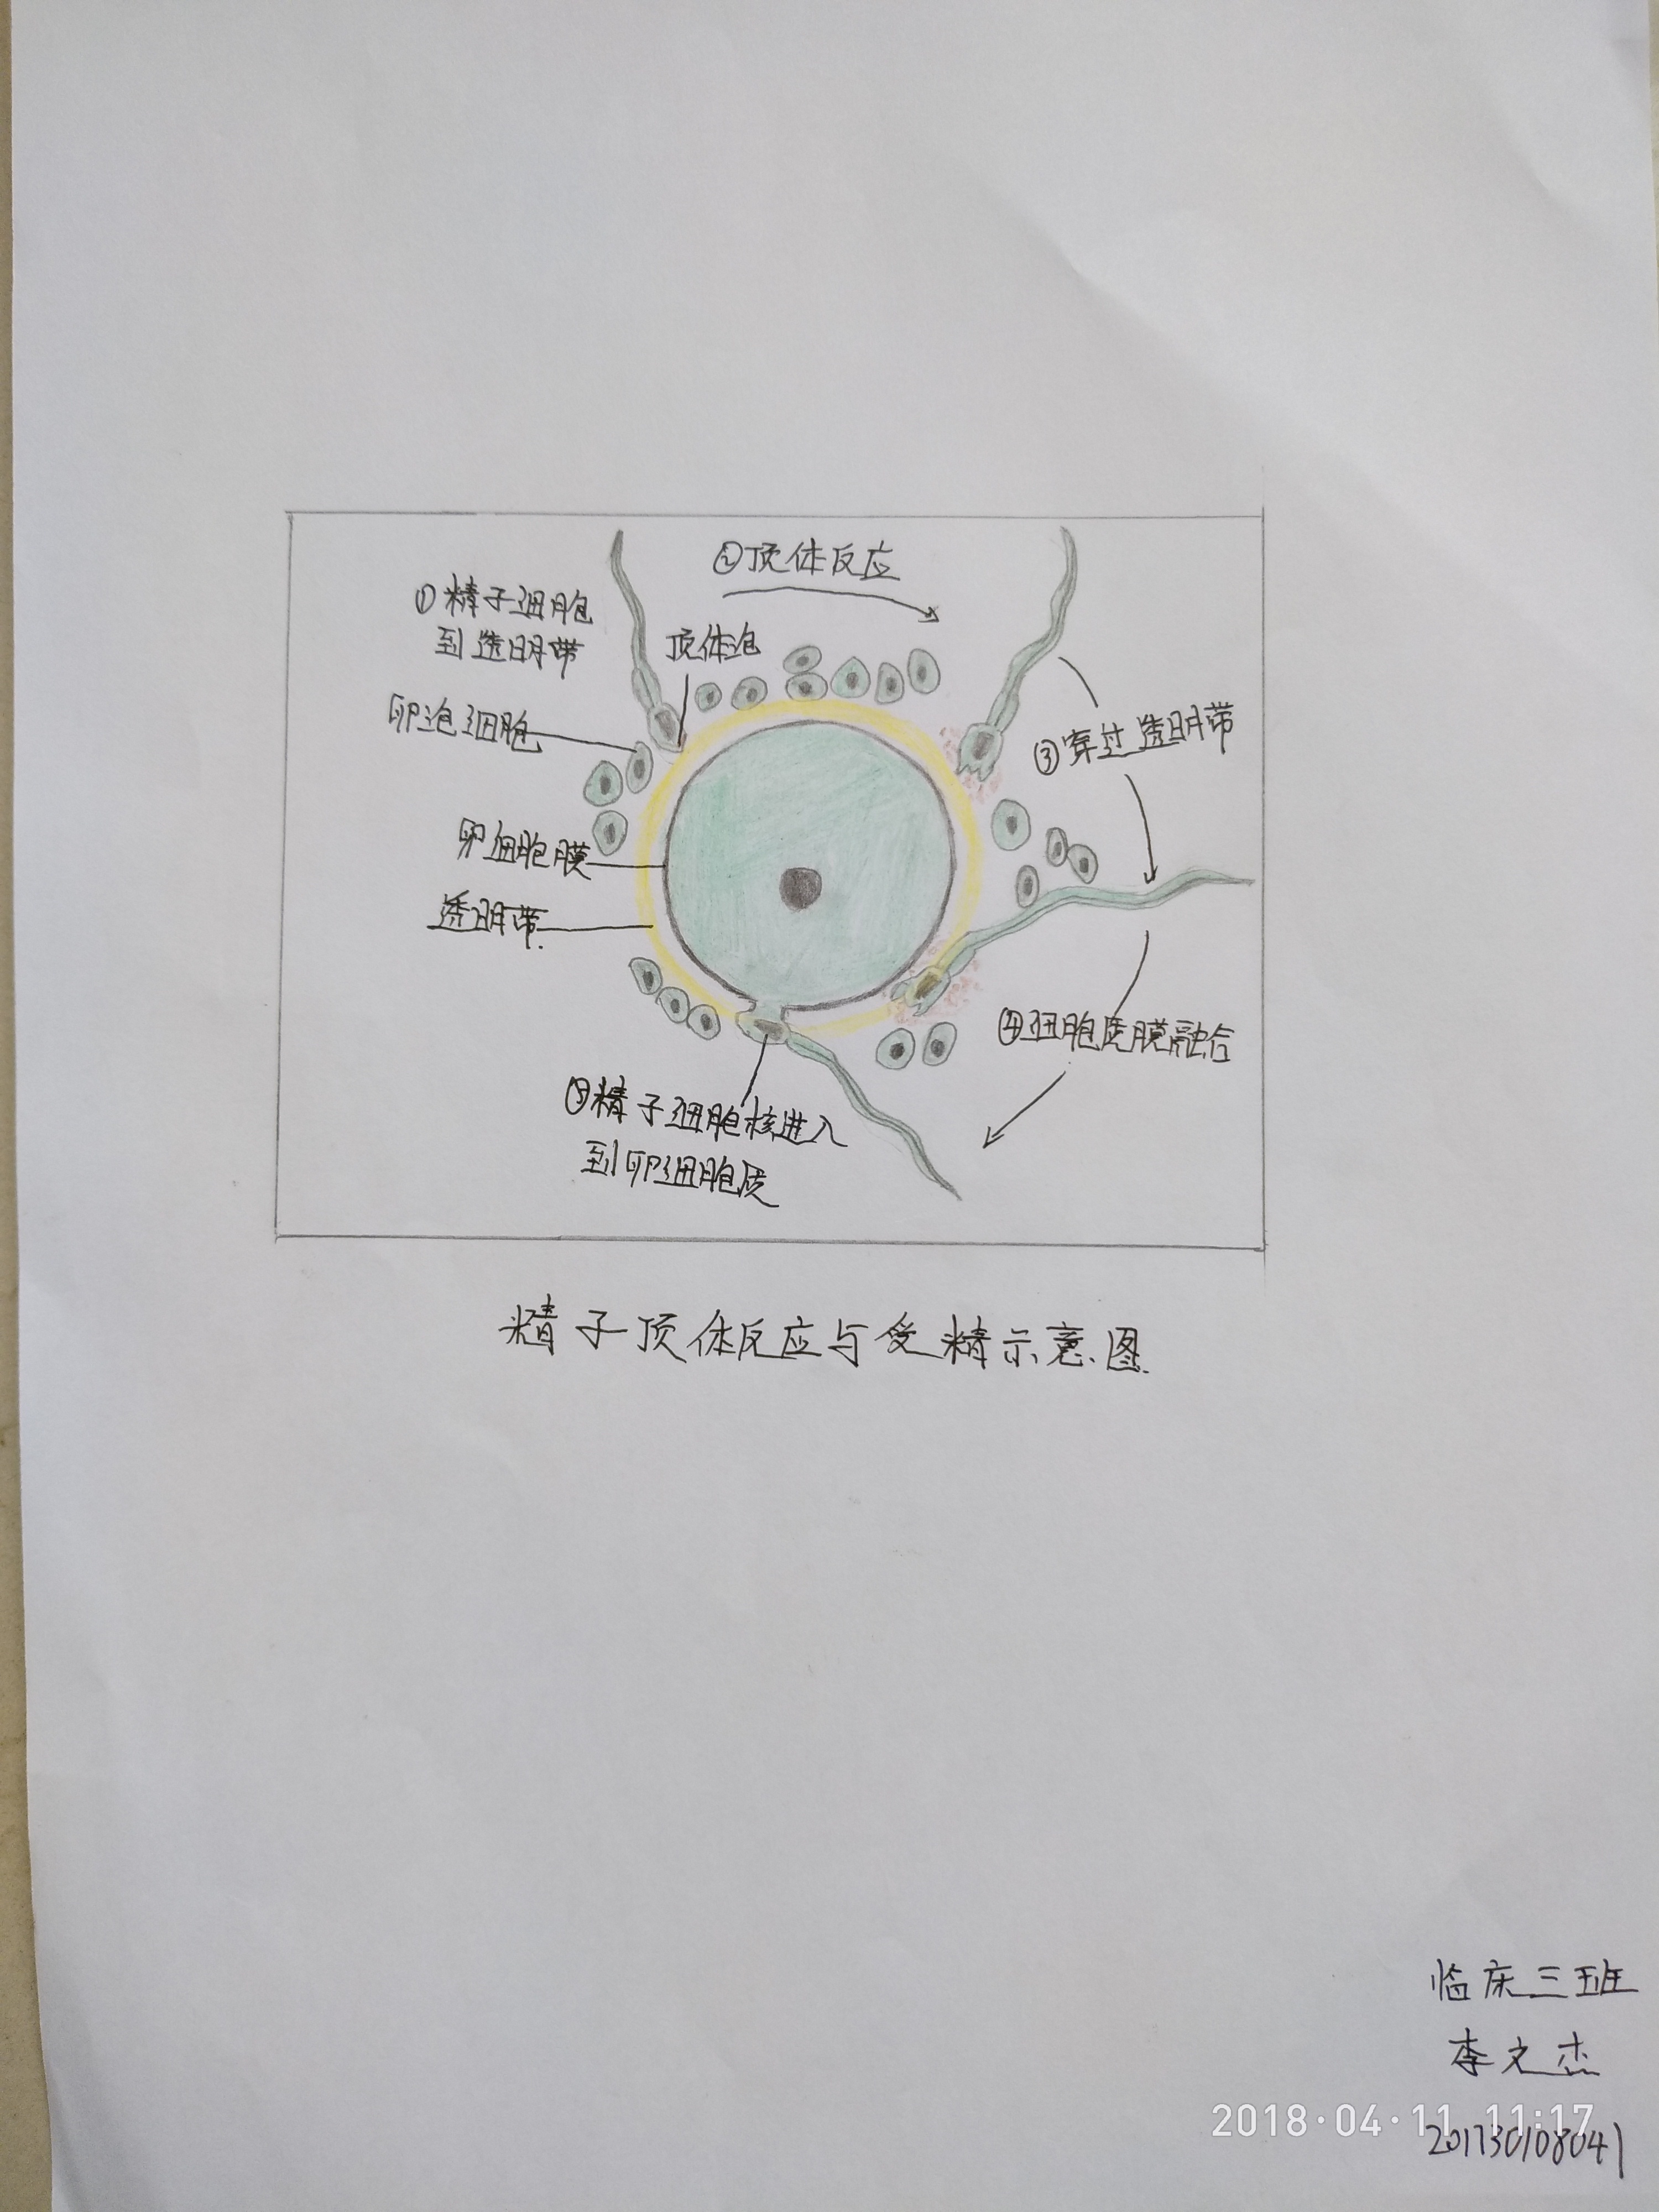 ②顶体反应
①精子细胞
到透明带
顶体泡
卵泡细胞
③穿过透明带
卵细胞膜
透明带
④细胞质膜融合
⑤精子细胞核进入
到卵细胞质
精子顶体反应与受精示意图
临床三班
李文杰
2018·04·11 11:17
201730108041